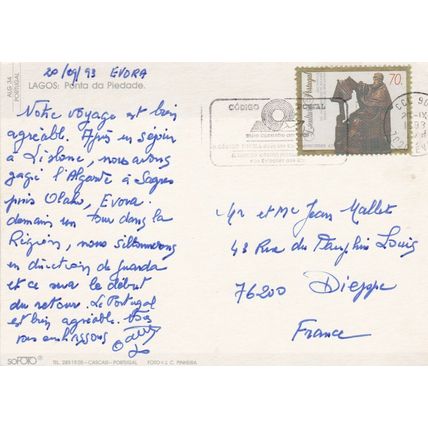 20/09/93 EVORA
ALG 34
PORTUGAL
LAGOS: Ponta da Piedade.
Notre voyage est bien
agréable. Après un séjour
à Lisbone, nous avons
gagé l'Algarve à Sagres
puis Olaho, Evora.
demain un tour dans la
Région, nous sillonnerons
en direction de Guarda
et ce sera le début
du retour. Le Portugal
est bien agréable.
vous embrassons
CÓDIGO POSTAL
Portugal
70.
Mr et Me Jean Mallet
43 Rue du Dauphin Louis
76200 Dieppe
France
SOFOTO®
TEL. 2851905 - CASCAIS - PORTUGAL FOTO: J. C. PINHEIRA